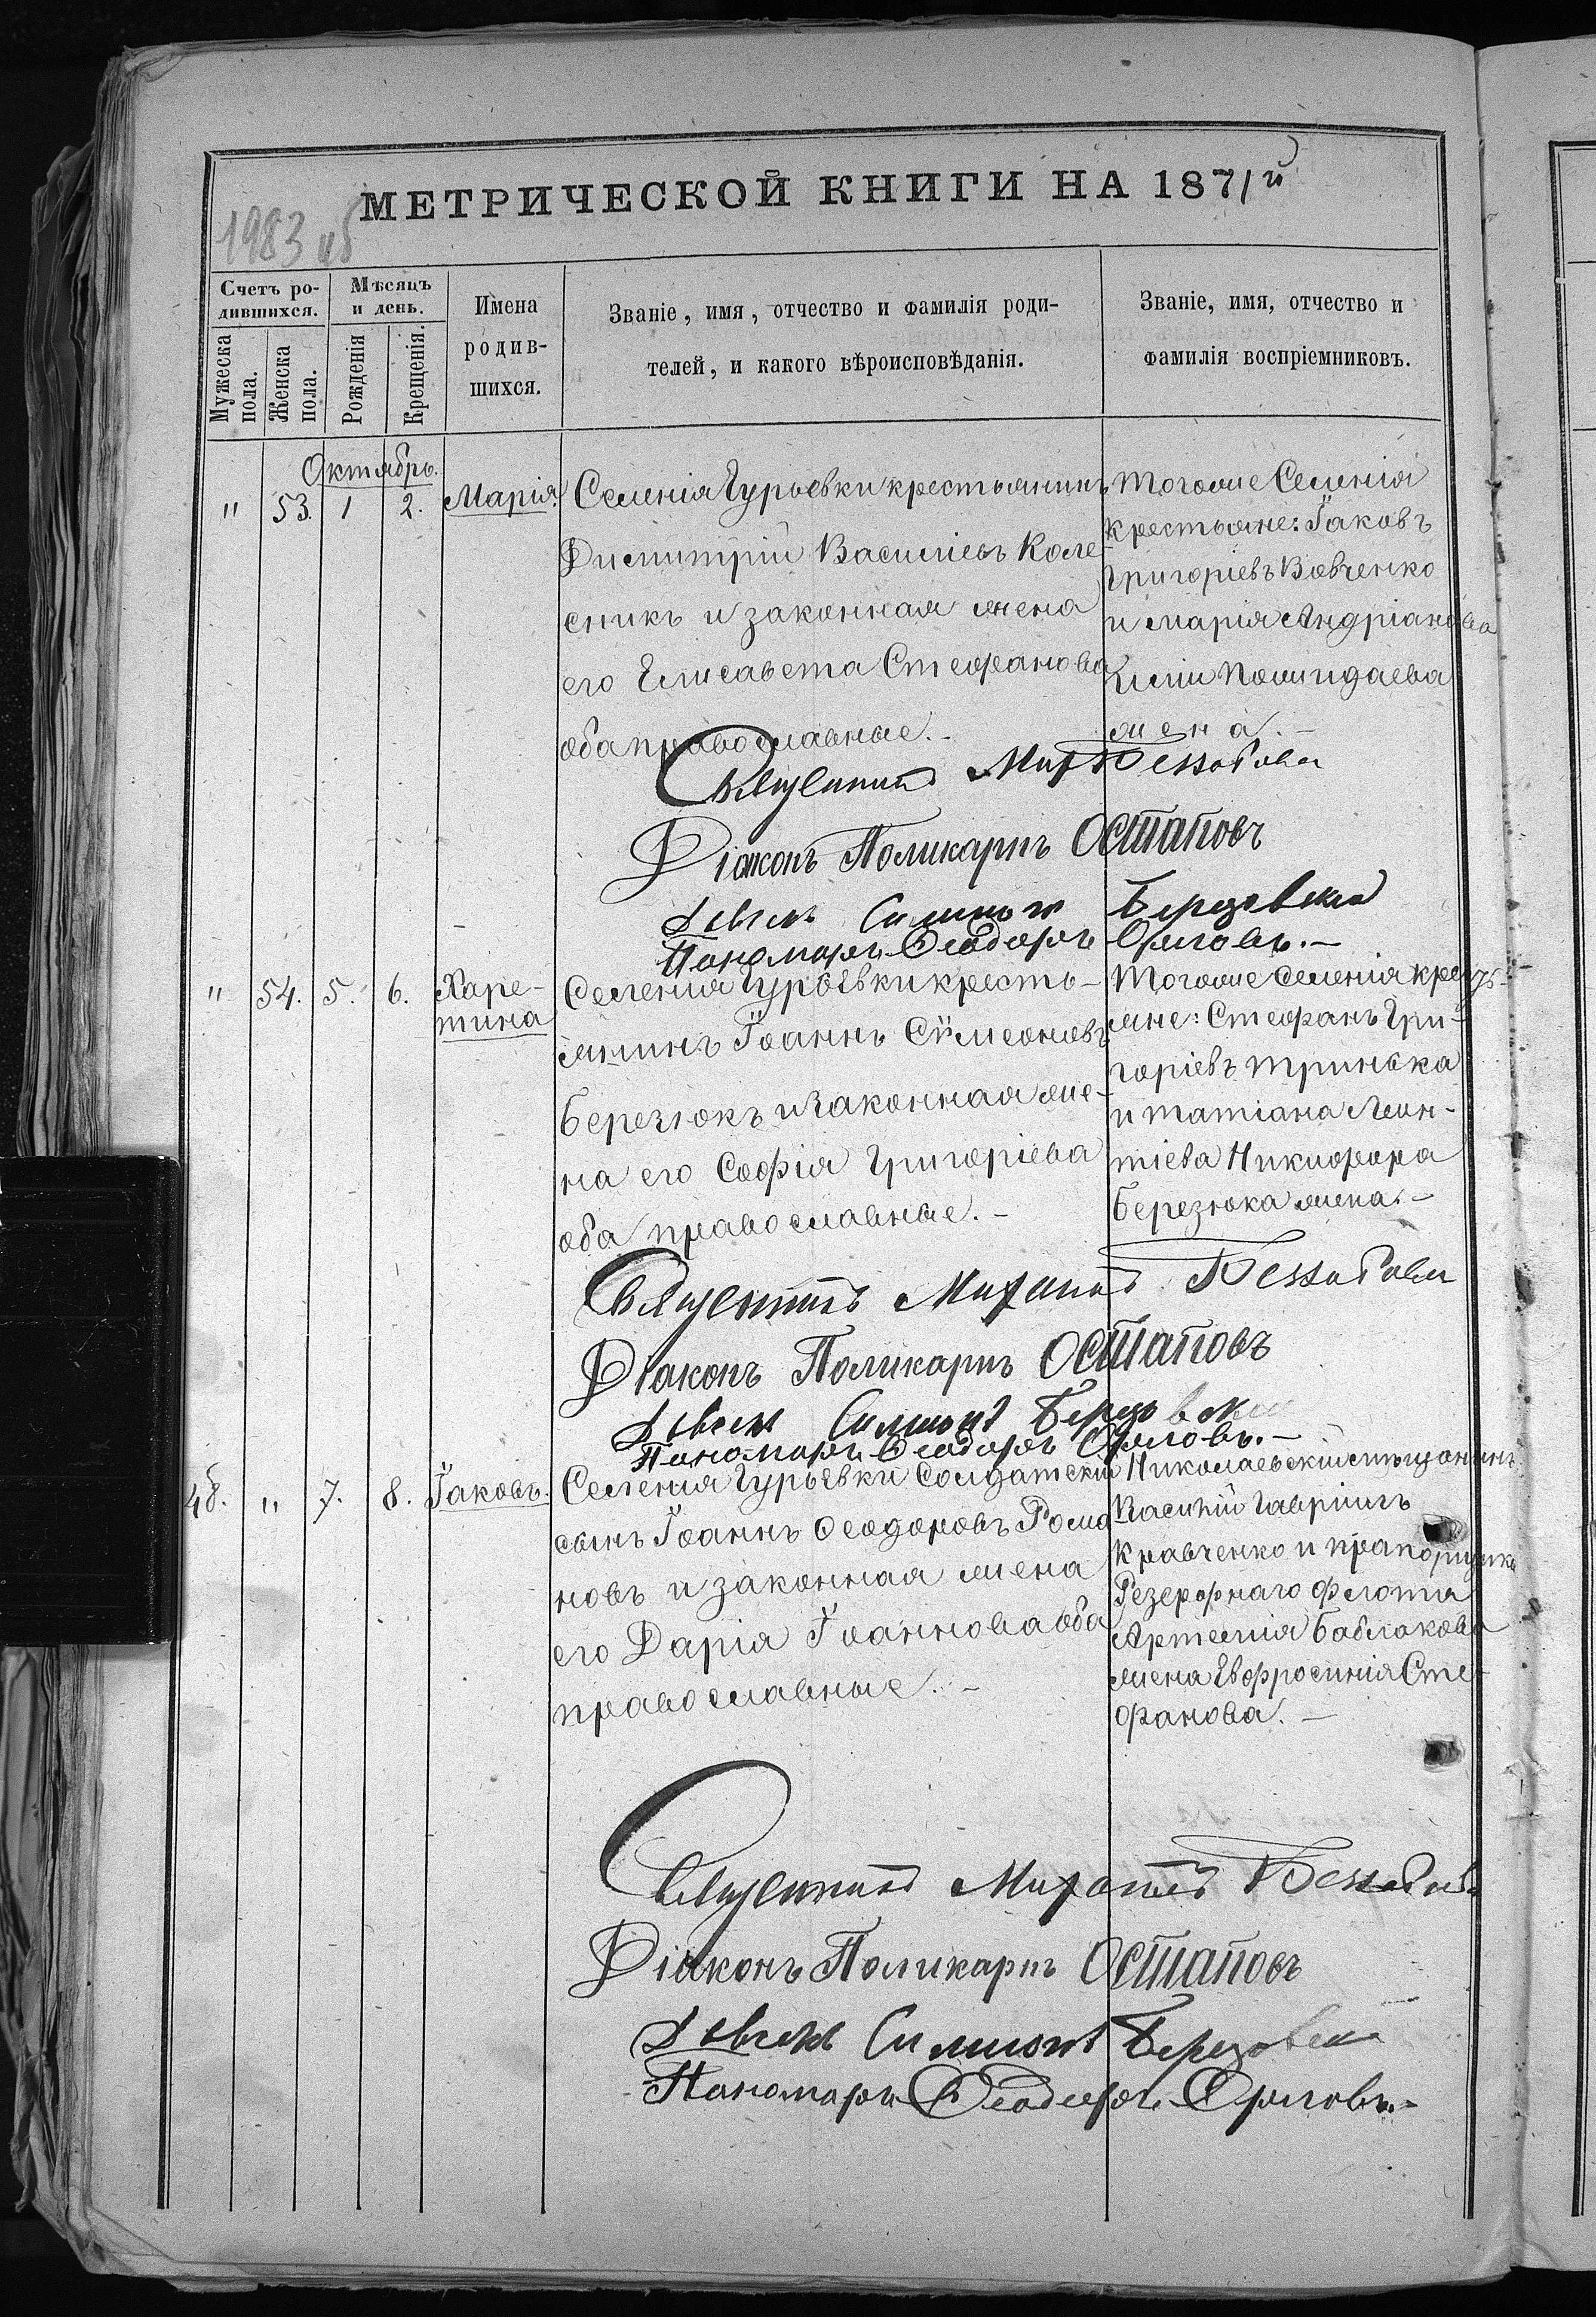 МЕТРИЧЕСКОЙ КНИГИ НА 1871й
1983 об
Счетъ ро-
дившихся.
Мѣсяцъ
и день.
Мужеска
пола.
Женска
пола.
Рожденія
Крещенія.
Имена
родив-
шихся.
Званіе, имя, отчество и фамилія роди-
телей, и какого вѣроисповѣданія.
Званіе, имя, отчество и
фамилія воспріемниковъ.
Октябрь.
" 53. 1 2. Марія.
Селенія Гурьевки крестьянинъ
Димитрій Василіевъ Коле-
сникъ и законная жена
его Елисавета Стефанова
оба православные.-
Тогоже Селенія
крестьяне: Іаковъ
Григоріевъ Вовченко
и Марія Андріанова
жена.-
Священникъ Мих
Діаконъ Поликарпъ Остаповъ
Дьячекъ Симеонъ Березовскій
Пономарь Ѳеодоръ Орловъ.-
" 54. 5. 6. Харе-
тина
Селенія Гурьевки кресть-
янинъ Іоаннъ Сѵмеоновъ
Березюкъ и законная же-
на его Софія Григоріева
оба православные.-
Тогоже селенія кресть-
яне: Стефанъ Гри-
горіевъ Тринька
и Татіана Леон-
тіева Никифора
Березюка жена.-
Священникъ Михаилъ
Діаконъ Поликарпъ Остаповъ
Дьячекъ Симеонъ Березовскій
Пономарь Ѳеодоръ Орловъ.-
48. " 7. 8. Іаковъ.
Селенія Гурьевки Солдатскій
сынъ Іоаннъ Ѳеодоровъ Рома
новъ и законная жена
его Дарія Іоаннова оба
православные.-
Николаевскій мѣщанинъ
Гавріилъ
Кравченко и прапорщика
Резерфнаго флота
Артемія Баблокова
жена Евфросинія Сте-
фанова.-
Священникъ Михаилъ
Діаконъ Поликарпъ Остаповъ
Дьячекъ Симеонъ Березовскій
Пономарь Ѳеодоръ Орловъ.-